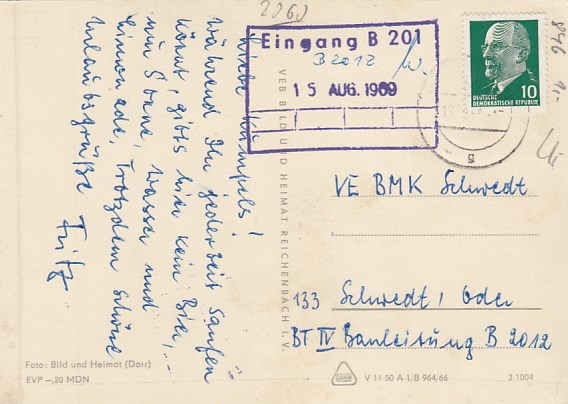 2060
Liebe Kumpels!
während Ihr jederzeit saufen
könnt, gibts hier kein Bier,
nur Sonne, Wasser und
Limonade. Trotzdem schöne
Urlaubsgrüße Fritz
Foto: Bild und Heimat (Darr)
EVP –,20 MDN
VEB BILD UND HEIMAT REICHENBACH I. V.
Eingang B 201
B 2012
15 AUG. 1969
10
DEUTSCHE
DEMOKRATISCHE REPUBLIK
846
VE BMK Schwedt
133 Schwedt/Oder
BT IV Bauleitung B 2012
V 11 50 A 1/B 964/66
3 1004